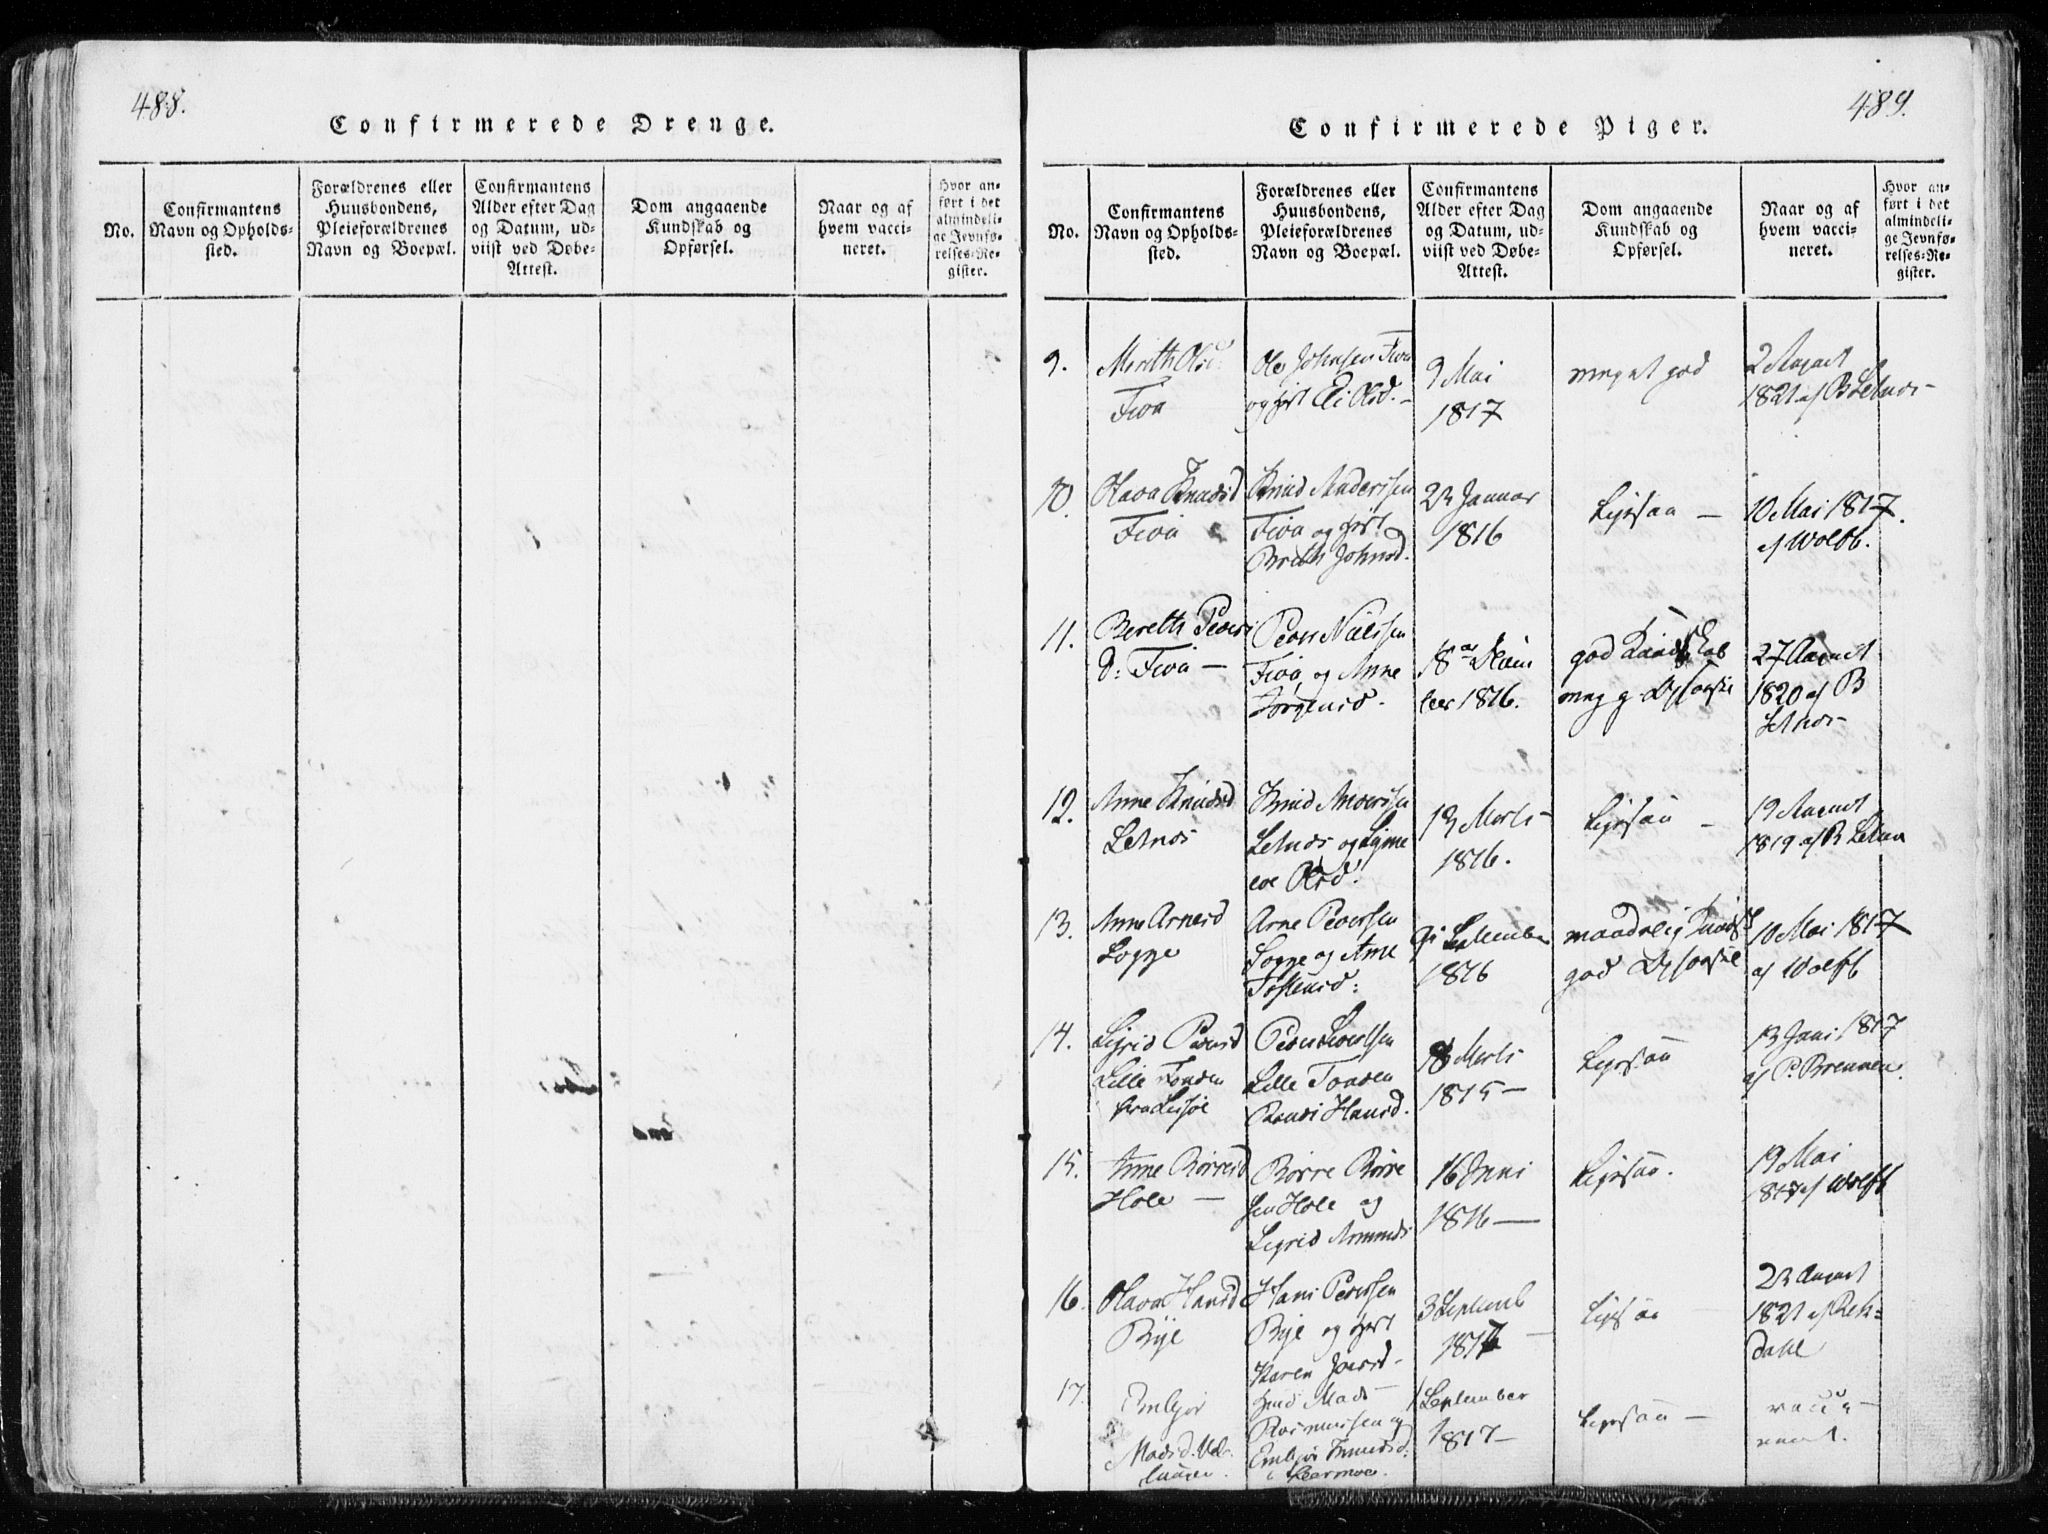 488.
Confirmerede Drenge.
No.
Confirmantens
Navn og Opholds-
sted.
Forældrenes eller
Huusbondens,
Pleieforældrenes
Navn og Boepæl.
Confirmantens
Alder efter Dag
og Datum, ud-
viist ved Døbe-
Attest.
Dom angaaende
Kundskab og
Opførsel.
Naar og af
hvem vacci-
neret.
Hvor an-
ført i det
almindeli-
ge Jevnfø-
relses-Re-
gister.
489.
Confirmerede Piger.
No.
Confirmantens
Navn og Opholds-
sted.
Forældrenes eller
Huusbondens,
Pleieforældrenes
Navn og Boepæl.
Confirmantens
Alder efter Dag
og Datum, ud-
viist ved Døbe-
Attest.
Dom angaaende
Kundskab og
Opførsel.
Naar og af
hvem vacci-
neret.
Hvor an-
ført i det
almindeli-
ge Jevnfø-
relses-Re-
gister.
9.
Merith Olsd.
Fiva
Ole Johnsen Fiva
og
9 Mai
1817
meget god
2 August
1821 af B Letnes
10.
Olava Knudsd
Fiva
Knud Anderssen
Fiva og
Brith Johnsd.
23 Januar
1816
Ligesaa —
10 Mai 1817.
af Wolff.
11.
Bereth Peders
D: Fiva —
Peder Nielssen
Fiva, og Anne
Jørgensd.
18
1816.
god Kundskab
meg g. Opførsel
27 August
1820 af B
Letnes
12.
Anne Knudsd
Letnes
Knud Anderssen
Letnes og
Olsd.
13 Marts
1816.
Ligesaa —
19 August
1819 af B Letnes
13.
Anne Arnesd
Sogge
Arne Pedersen
Sogge og Anne
Tostensd:
September
1816
maadelig Kundsk
god Opførsel
10 Mai 1817
af Wolff
14.
Sigrid Pedersd
Lille Fonden
fra Lesjøe
Peder
Lille Fonden
Hansd.
18 Marts
1815 —
Ligesaa
13 Juni 1817
af P. Brennen.
15.
Anne Børresd
Hole —
Børre Børre
sen Hole og
Sigrid
16 Juni
1816 —
Ligesaa.
19 Mai
1817 af Wolff
16.
Olava Hansd
Bye
Hans Pederssen
Bye og
Karen
3 Septemb
1817 —
Ligesaa
23 August
1821 af
dahl
17.
Embjør
Madsd.
Mads
Rasmussen og
Embjør Knudsd:
1 September
1817 —
Ligesaa —